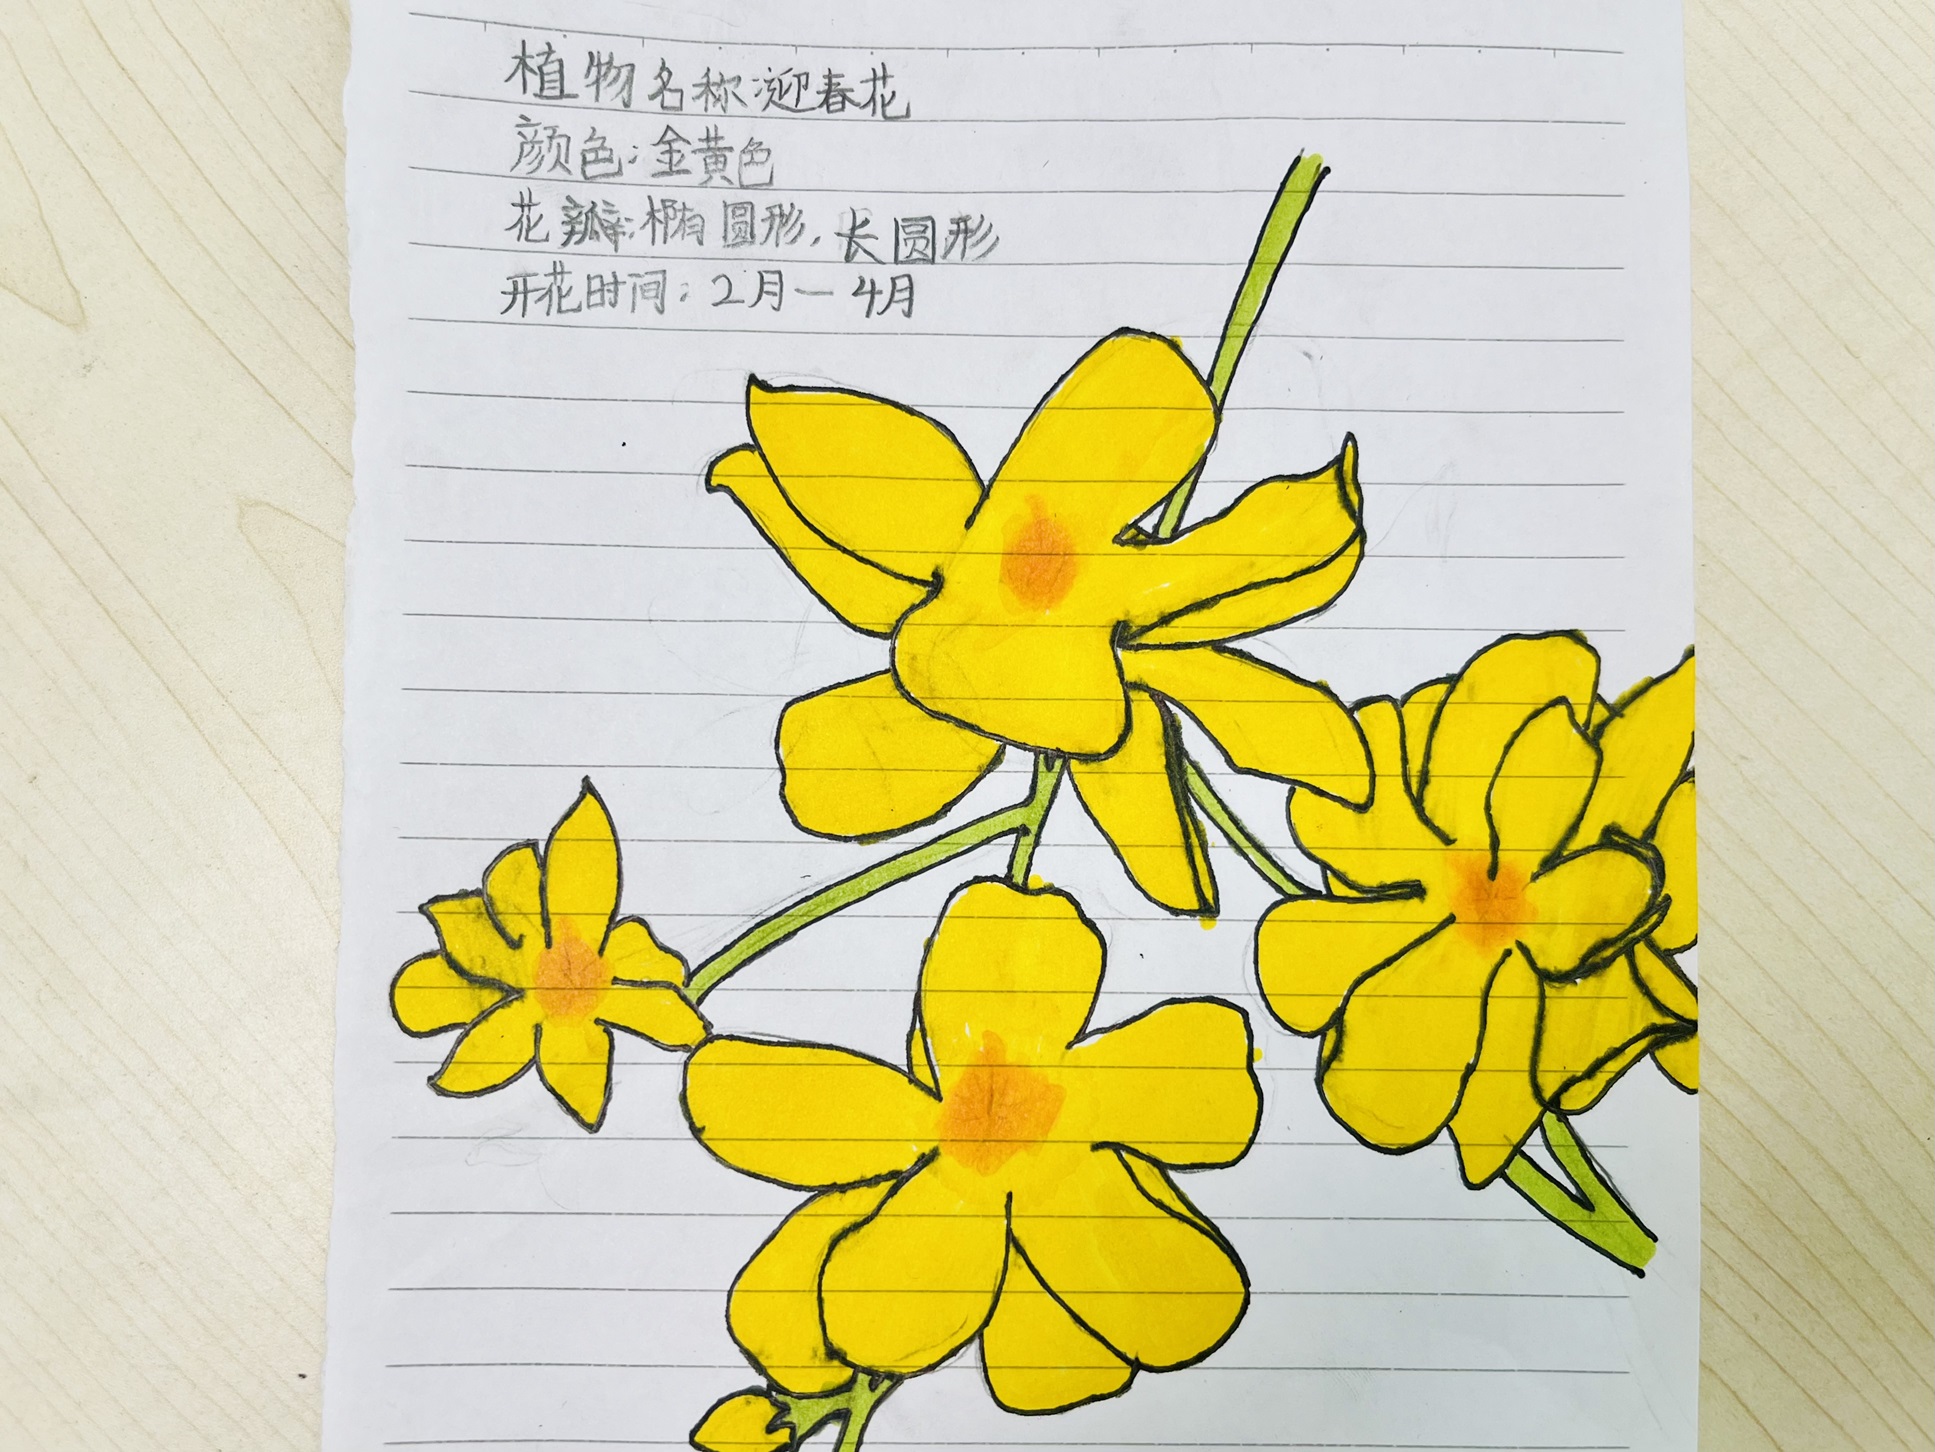 植物名称:迎春花
颜色:金黄色
花瓣:椭圆形,长圆形
开花时间:2月—4月